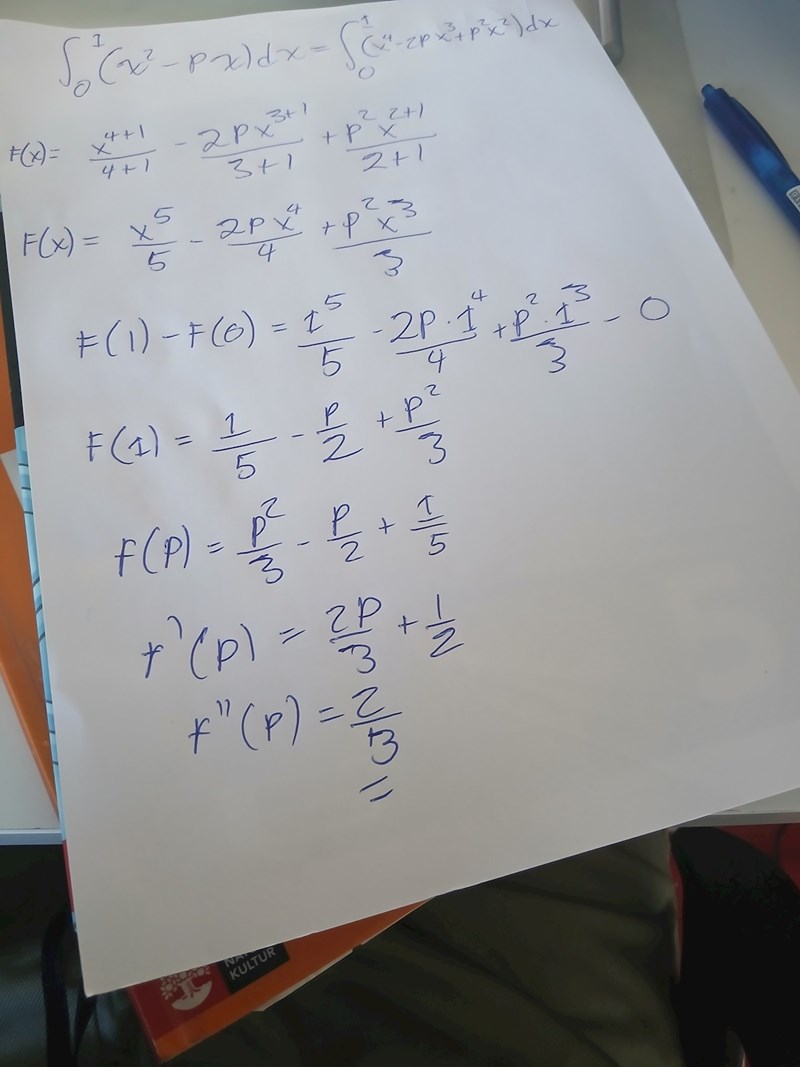 ∫₀¹ (x² - px) dx = ∫₀¹ (x⁴ - 2px³ + p²x²) dx
F(x) = x⁴⁺¹/4+1 - 2px³⁺¹/3+1 + p²x²⁺¹/2+1
F(x) = x⁵/5 - 2px⁴/4 + p²x³/3
F(1) - F(0) = 1⁵/5 - 2p·1⁴/4 + p²·1³/3 - 0
F(1) = 1/5 - p/2 + p²/3
F(p) = p²/3 - p/2 + 1/5
F'(p) = 2p/3 + 1/2
F''(p) = 2/3
=
KULTUR